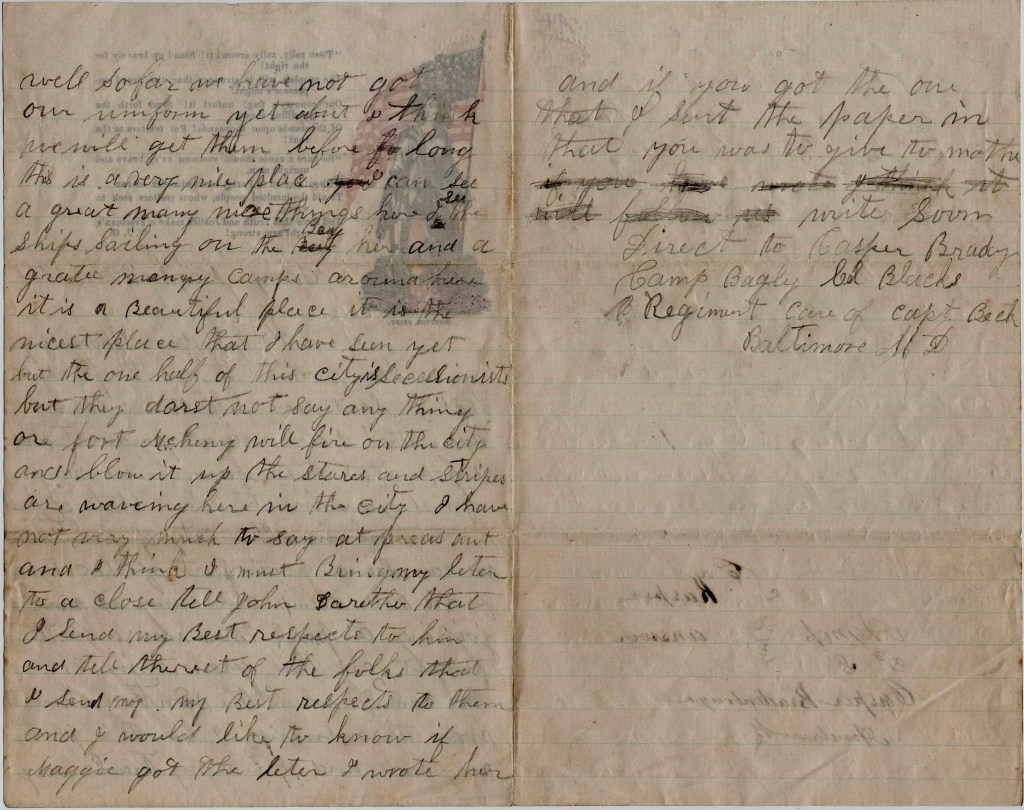 well so far we have not got
our uniform yet about I think
we will get them before fo long
this is a very nise place you can see
a great many nice things here I see the
ships sailing on the Bay her and a
grate meney camps around here
it is a Beautiful place it is the
nicest place that I have seen yet
but the one half of this city is secessionists
but they darst not say any thing
ore fort Mcheny will fire on the city
and blow it up the stares and stripes
are waveing here in the city I have
not very much to say at preasant
and I think I must Bring my leter
to a close tell John that
I send my Best respects to him
and tell the rest of the folks that
I send my my Best respects to them
and I would like to know if
Maggie got the leter I wrote her
and if you got the one
that I sent the paper in
that you was to give to mothe
if you have wrote I think it
will follow us write Soon
Direct to Casper Brady
Camp Bagly Col Blacks
Regiment Care of capt Beck
Baltimore M D